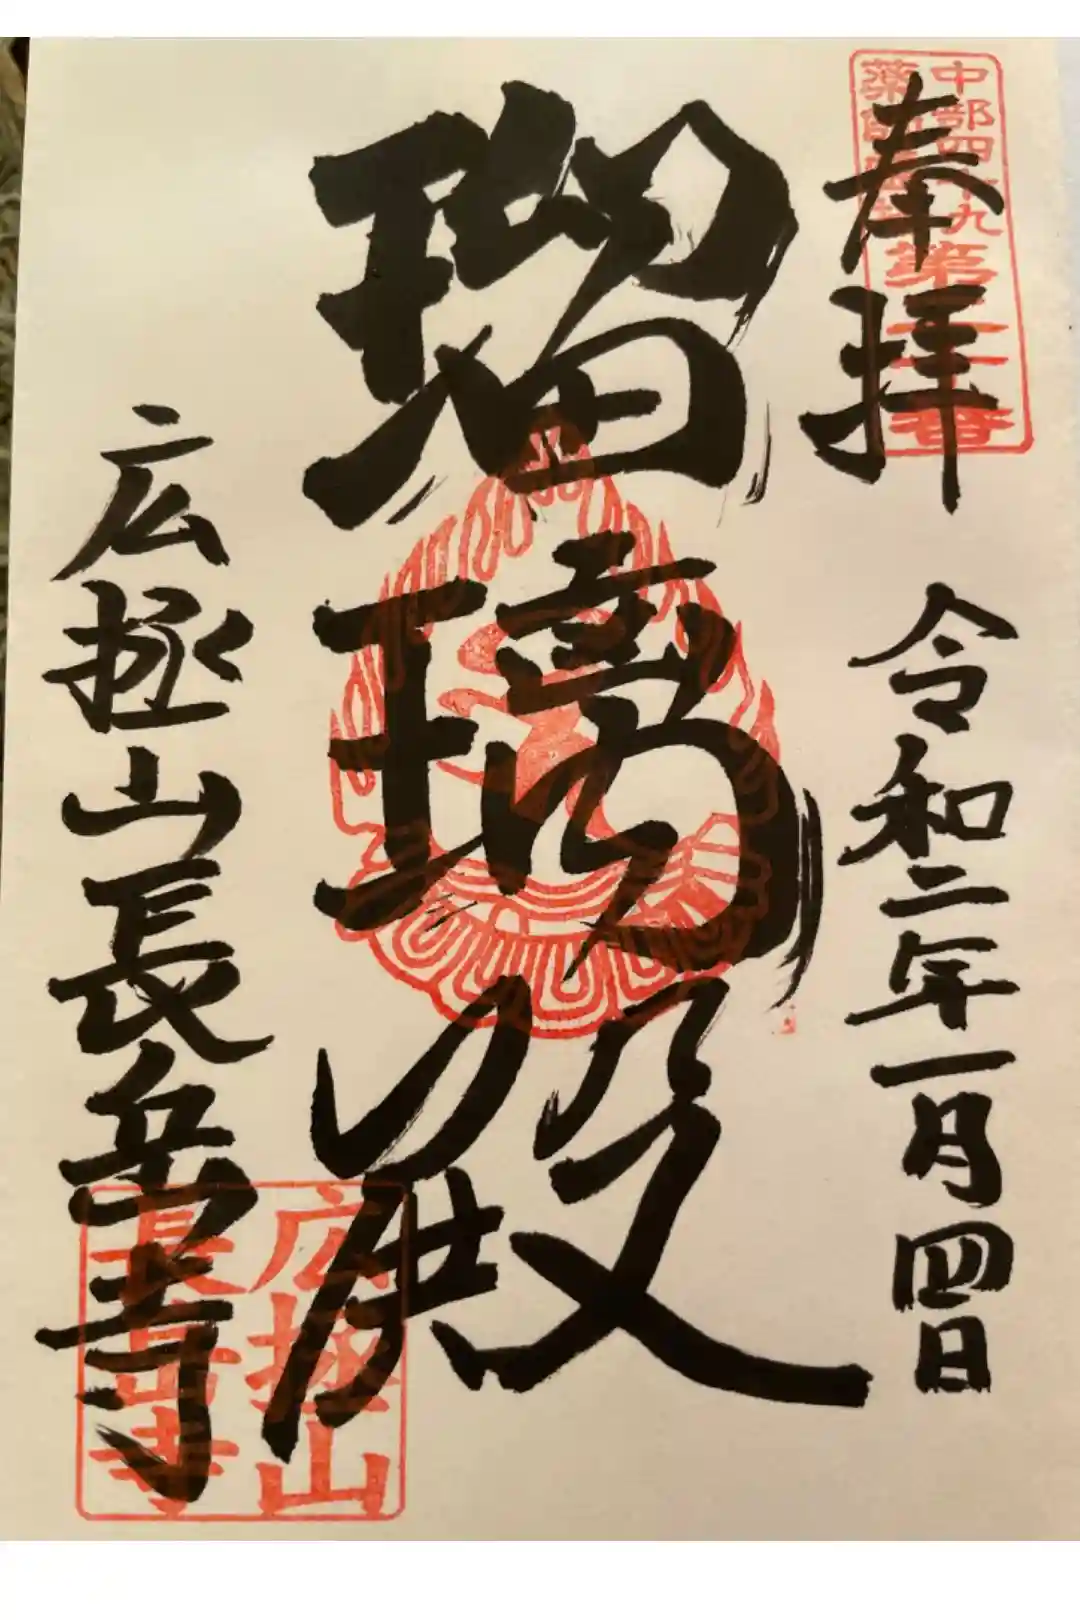 奉拝
中部四十九
薬師霊場
令和二年一月四日
瑠璃殿
広拯山長岳寺
広拯山
長岳寺